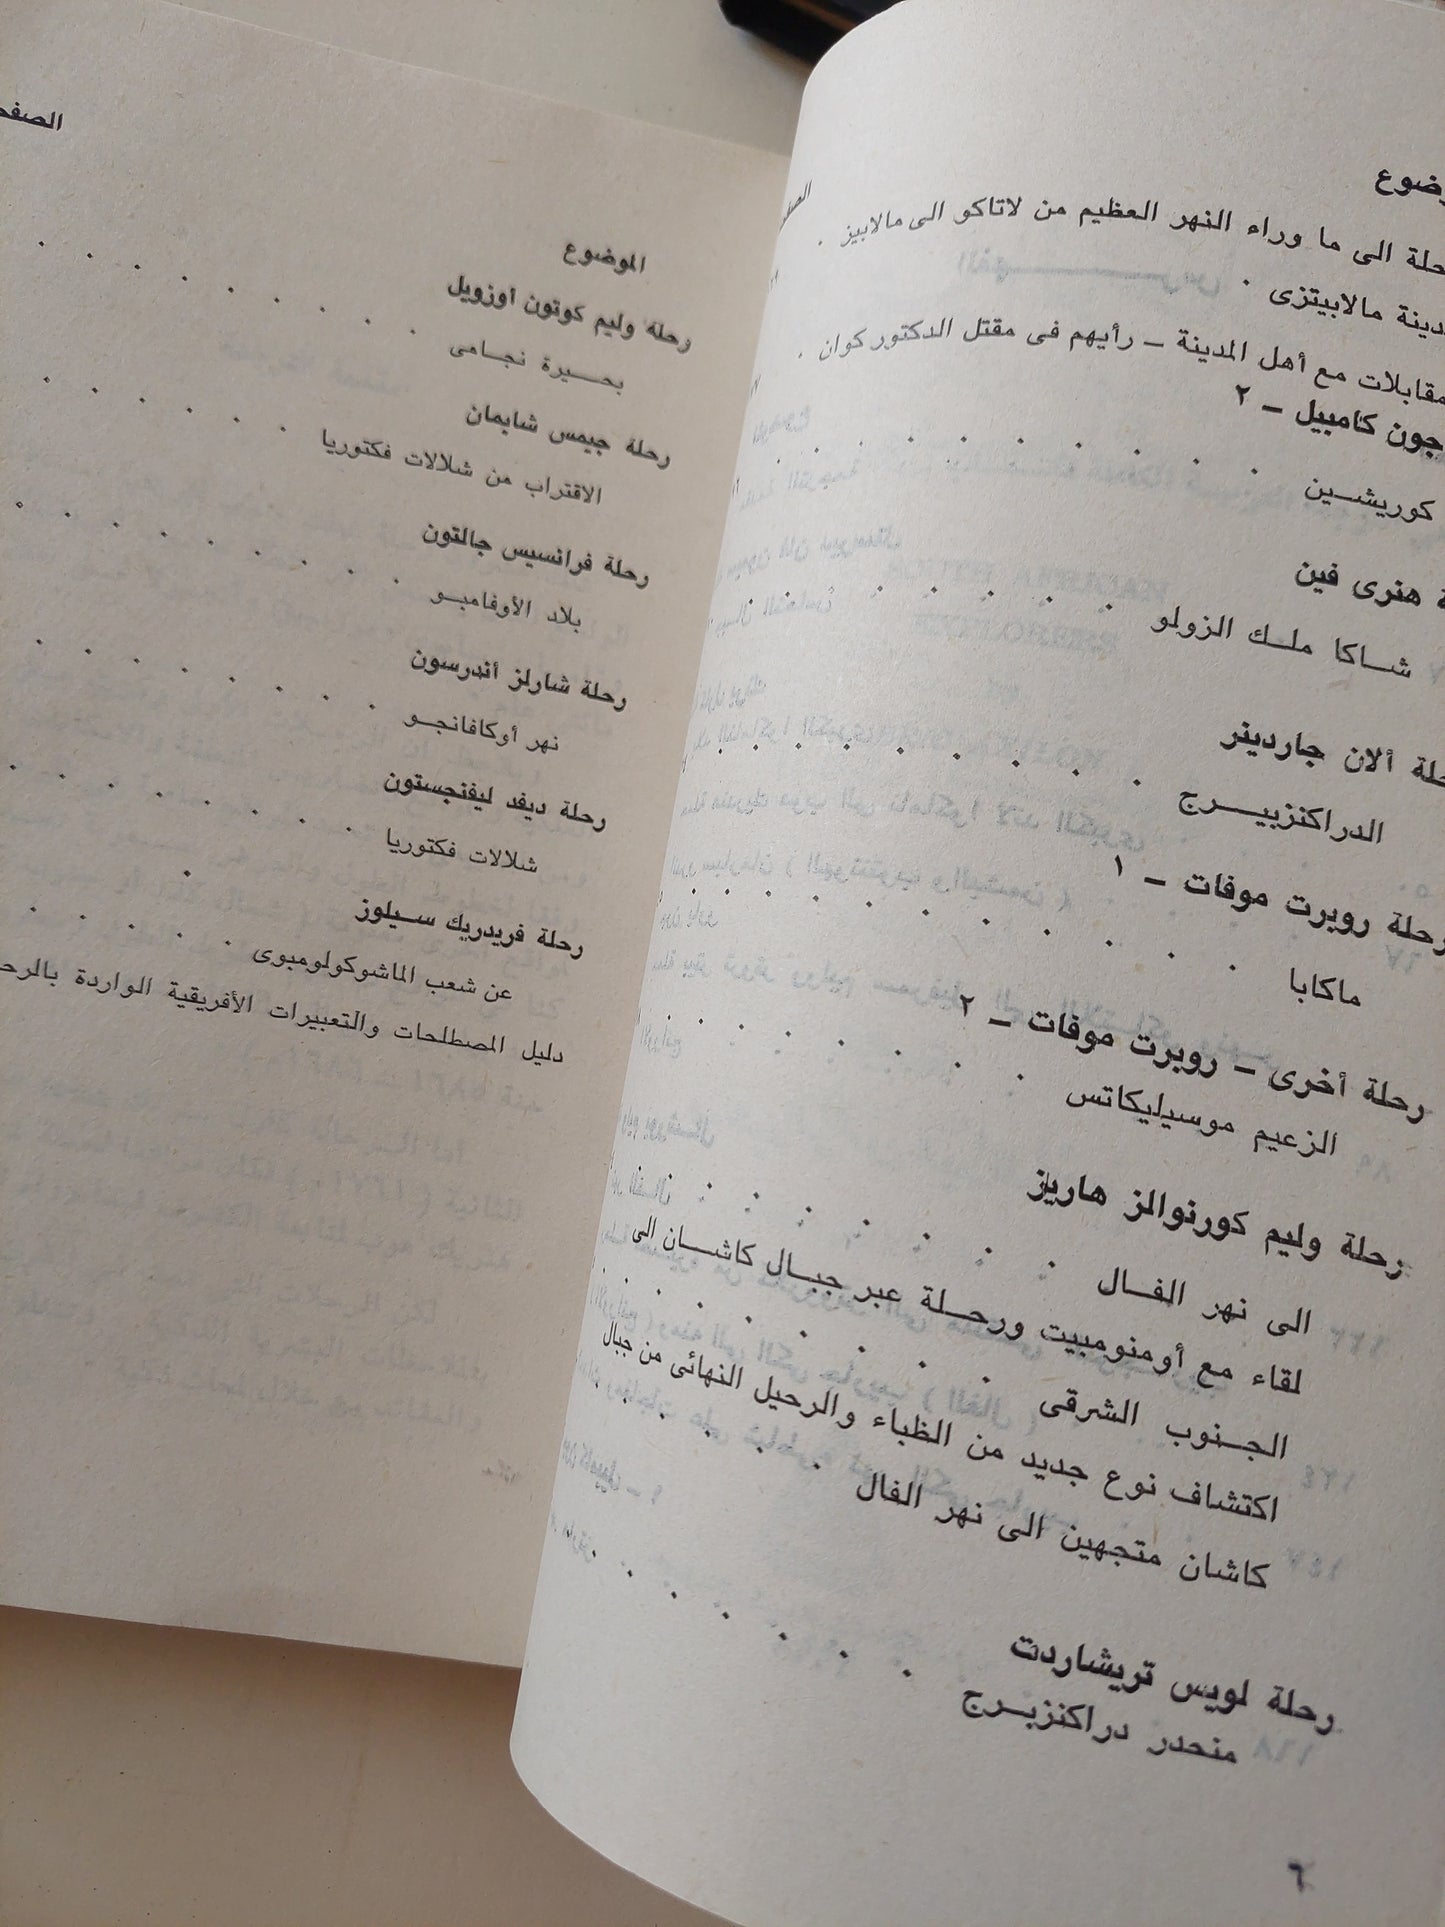 رحلة الى ما وراء النهر العظيم من لاتاكو الى مالابيز
مدينة مالابيتزى
مقابلات مع أهل المدينة – رأيهم فى مقتل الدكتور كوان
جون كامبيل – ٢
كوريشين
هنرى فين
شاكا ملك الزولو
رحلة ألان جاردينر
الدراكنزبيرج
رحلة روبرت موفات – ١
ماكابا
رحلة أخرى – روبرت موفات – ٢
الزعيم موسيليكاتس
رحلة وليم كورنوالز هاريز
الى نهر الفال
لقاء مع أومنومبيت ورحلة عبر جبال كاشان الى
الجنوب الشرقى
اكتشاف نوع جديد من الظباء والرحيل النهائى من جبال
كاشان متجهين الى نهر الفال
رحلة لويس تريشاردت
منحدر دراكنزبرج
٦
الموضوع
رحلة وليم كوتون أوزويل
بحيرة نجامى
رحلة جيمس شابمان
الاقتراب من شلالات فكتوريا
رحلة فرانسيس جالتون
بلاد الأوفامبو
رحلة شارلز أندرسون
نهر أوكافانجو
رحلة ديفد ليفنجستون
شلالات فكتوريا
رحلة فريدريك سيلوز
عن شعب الماشوكولومبوى
دليل المصطلحات والتعبيرات الأفريقية الواردة